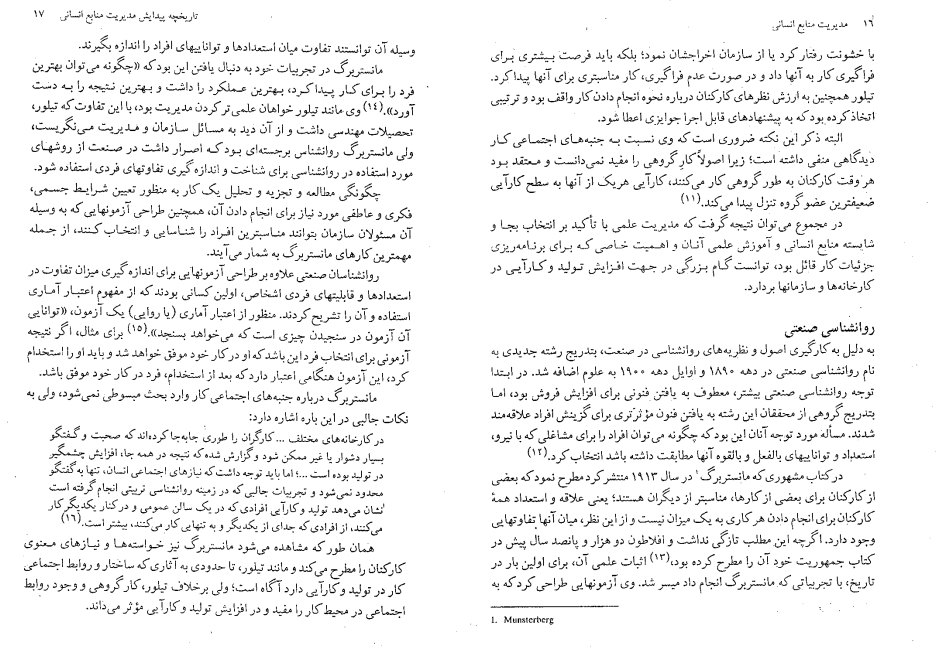 ۱۶ مدیریت منابع انسانی
با خشونت رفتار کرد یا از سازمان اخراجشان نمود؛ بلکه باید فرصت بیشتری برای
فراگیری کار به آنها داد و در صورت عدم فراگیری، کار مناسبتری برای آنها پیدا کرد.
تیلور همچنین به ارزش نظرهای کارکنان درباره نحوه انجام دادن کار واقف بود و ترتیبی
اتخاذ کرده بود که به پیشنهادهای قابل اجرا جوایزی اعطا شود.
البته ذکر این نکته ضروری است که وی نسبت به جنبه‌های اجتماعی کار
دیدگاهی منفی داشته است؛ زیرا اصولاً کار گروهی را مفید نمی‌دانست و معتقد بود
هر وقت کارکنان به طور گروهی کار می‌کنند، کارآیی هریک از آنها به سطح کارآیی
ضعیفترین عضو گروه تنزل پیدا می‌کند.(۱۱)
در مجموع می‌توان نتیجه گرفت که مدیریت علمی با تأکید بر انتخاب بجا و
شایسته منابع انسانی و آموزش علمی آنان و اهمیت خاصی که برای برنامه‌ریزی
جزئیات کار قائل بود، توانست گام بزرگی در جهت افزایش تولید و کارآیی در
کارخانه‌ها و سازمانها بردارد.
روانشناسی صنعتی
به دلیل به کارگیری اصول و نظریه‌های روانشناسی در صنعت، بتدریج رشته جدیدی به
نام روانشناسی صنعتی در دهه ۱۸۹۰ و اوایل دهه ۱۹۰۰ به علوم اضافه شد. در ابتدا
توجه روانشناسی صنعتی بیشتر، معطوف به یافتن فنونی برای افزایش فروش بود، اما
بتدریج گروهی از محققان این رشته به یافتن فنون مؤثرتری برای گزینش افراد علاقه‌مند
شدند. مسأله مورد توجه آنان این بود که چگونه می‌توان افراد را برای مشاغلی که با نیرو،
استعداد و تواناییهای بالفعل و بالقوه آنها مطابقت داشته باشد انتخاب کرد.(۱۲)
در کتاب مشهوری که مانستربرگ۱ در سال ۱۹۱۳ منتشر کرد مطرح نمود که بعضی
از کارکنان برای بعضی از کارها، مناسبتر از دیگران هستند؛ یعنی علاقه و استعداد همهٔ
کارکنان برای انجام دادن هر کاری به یک میزان نیست و از این نظر، میان آنها تفاوتهایی
وجود دارد. اگرچه این مطلب تازگی نداشت و افلاطون دو هزار و پانصد سال پیش در
کتاب جمهوریت خود آن را مطرح کرده بود،(۱۳) اثبات علمی آن، برای اولین بار در
تاریخ، با تجربیاتی که مانستربرگ انجام داد میسر شد. وی آزمونهایی طراحی کرد که به
1. Munsterberg
تاریخچه پیدایش مدیریت منابع انسانی ۱۷
وسیله آن توانستند تفاوت میان استعدادها و تواناییهای افراد را اندازه بگیرند.
مانستربرگ در تجربیات خود به دنبال یافتن این بود که «چگونه می‌توان بهترین
فرد را برای کار پیدا کرد، بهترین عملکرد را داشت و بهترین نتیجه را به دست
آورد».(۱۴) وی مانند تیلور خواهان علمی‌تر کردن مدیریت بود، با این تفاوت که تیلور،
تحصیلات مهندسی داشت و از آن دید به مسائل سازمان و مدیریت می‌نگریست،
ولی مانستربرگ روانشناس برجسته‌ای بود که اصرار داشت در صنعت از روشهای
مورد استفاده در روانشناسی برای شناخت و اندازه گیری تفاوتهای فردی استفاده شود.
چگونگی مطالعه و تجزیه و تحلیل یک کار به منظور تعیین شرایط جسمی،
فکری و عاطفی مورد نیاز برای انجام دادن آن، همچنین طراحی آزمونهایی که به وسیله
آن مسئولان سازمان بتوانند مناسبترین افراد را شناسایی و انتخاب کنند، از جمله
مهمترین کارهای مانستربرگ به شمار می‌آیند.
روانشناسان صنعتی علاوه بر طراحی آزمونهایی برای اندازه گیری میزان تفاوت در
استعدادها و قابلیتهای فردی اشخاص، اولین کسانی بودند که از مفهوم اعتبار آماری
استفاده و آن را تشریح کردند. منظور از اعتبار آماری (یا روایی) یک آزمون، «توانایی
آن آزمون در سنجیدن چیزی است که می‌خواهد بسنجد».(۱۵) برای مثال، اگر نتیجه
آزمونی برای انتخاب فرد این باشد که او در کار خود موفق خواهد شد و باید او را استخدام
کرد، این آزمون هنگامی اعتبار دارد که بعد از استخدام، فرد در کار خود موفق باشد.
مانستربرگ درباره جنبه‌های اجتماعی کار وارد بحث مبسوطی نمی‌شود، ولی به
نکات جالبی در این باره اشاره دارد:
در کارخانه‌های مختلف ... کارگران را طوری جابه‌جا کرده‌اند که صحبت و گفتگو
بسیار دشوار یا غیر ممکن شود و گزارش شده که نتیجه در همه جا، افزایش چشمگیر
در تولید بوده است ...؛ اما باید توجه داشت که نیازهای اجتماعی انسان، تنها به گفتگو
محدود نمی‌شود و تجربیات جالبی که در زمینه روانشناسی تربیتی انجام گرفته است
نشان می‌دهد تولید و کارآیی افرادی که در یک سالن عمومی و در کنار یکدیگر کار
می‌کنند، از افرادی که جدای از یکدیگر و به تنهایی کار می‌کنند، بیشتر است.(۱۶)
همان طور که مشاهده می‌شود مانستربرگ نیز خواسته‌ها و نیازهای معنوی
کارکنان را مطرح می‌کند و مانند تیلور، تا حدودی به آثاری که ساختار و روابط اجتماعی
کار در تولید و کارآیی دارد آگاه است؛ ولی برخلاف تیلور، کار گروهی و وجود روابط
اجتماعی در محیط کار را مفید و در افزایش تولید و کارآیی مؤثر می‌داند.